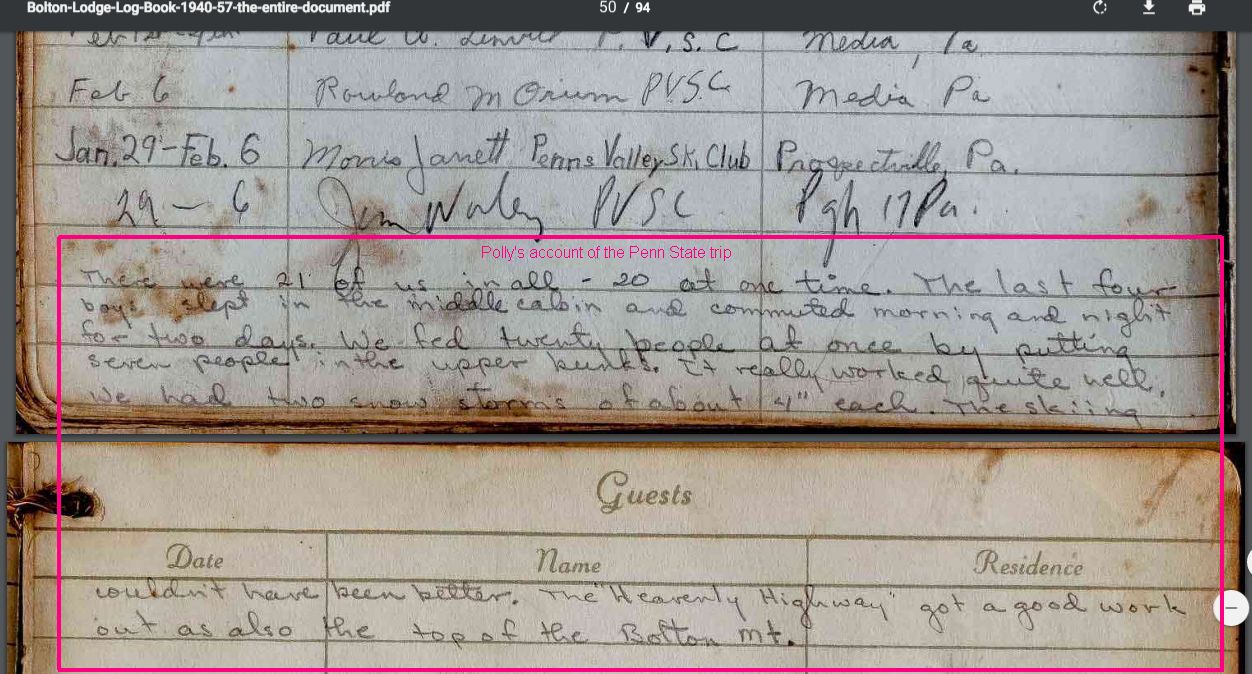 Bolton-Lodge-Log-Book-1940-57-the-entire-document.pdf
50 / 94
Paul W. P.V.S.C Media, Pa
Feb 6 Rowland M Orium PVSC Media Pa
Jan. 29-Feb. 6 Morris Jarrett Penns Valley Ski Club Prospectville, Pa.
29 - 6 Jim PVSC Pgh 17 Pa.
Polly's account of the Penn State trip
There were 21 of us in all - 20 at one time. The last four
boys slept in the middle cabin and commuted morning and night
for two days. We fed twenty people at once by putting
seven people in the upper bunks. It really worked quite well.
We had two snow storms of about 4" each. The skiing
Guests
Date Name Residence
couldn't have been better. The "Heavenly Highway" got a good work
out as also the top of the Bolton mt.